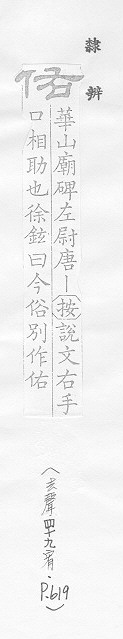 隸辨
佑
華山廟碑左尉唐丨按說文右手
口相助也徐鉉曰今俗別作佑
(去聲四十九宥·P.619)